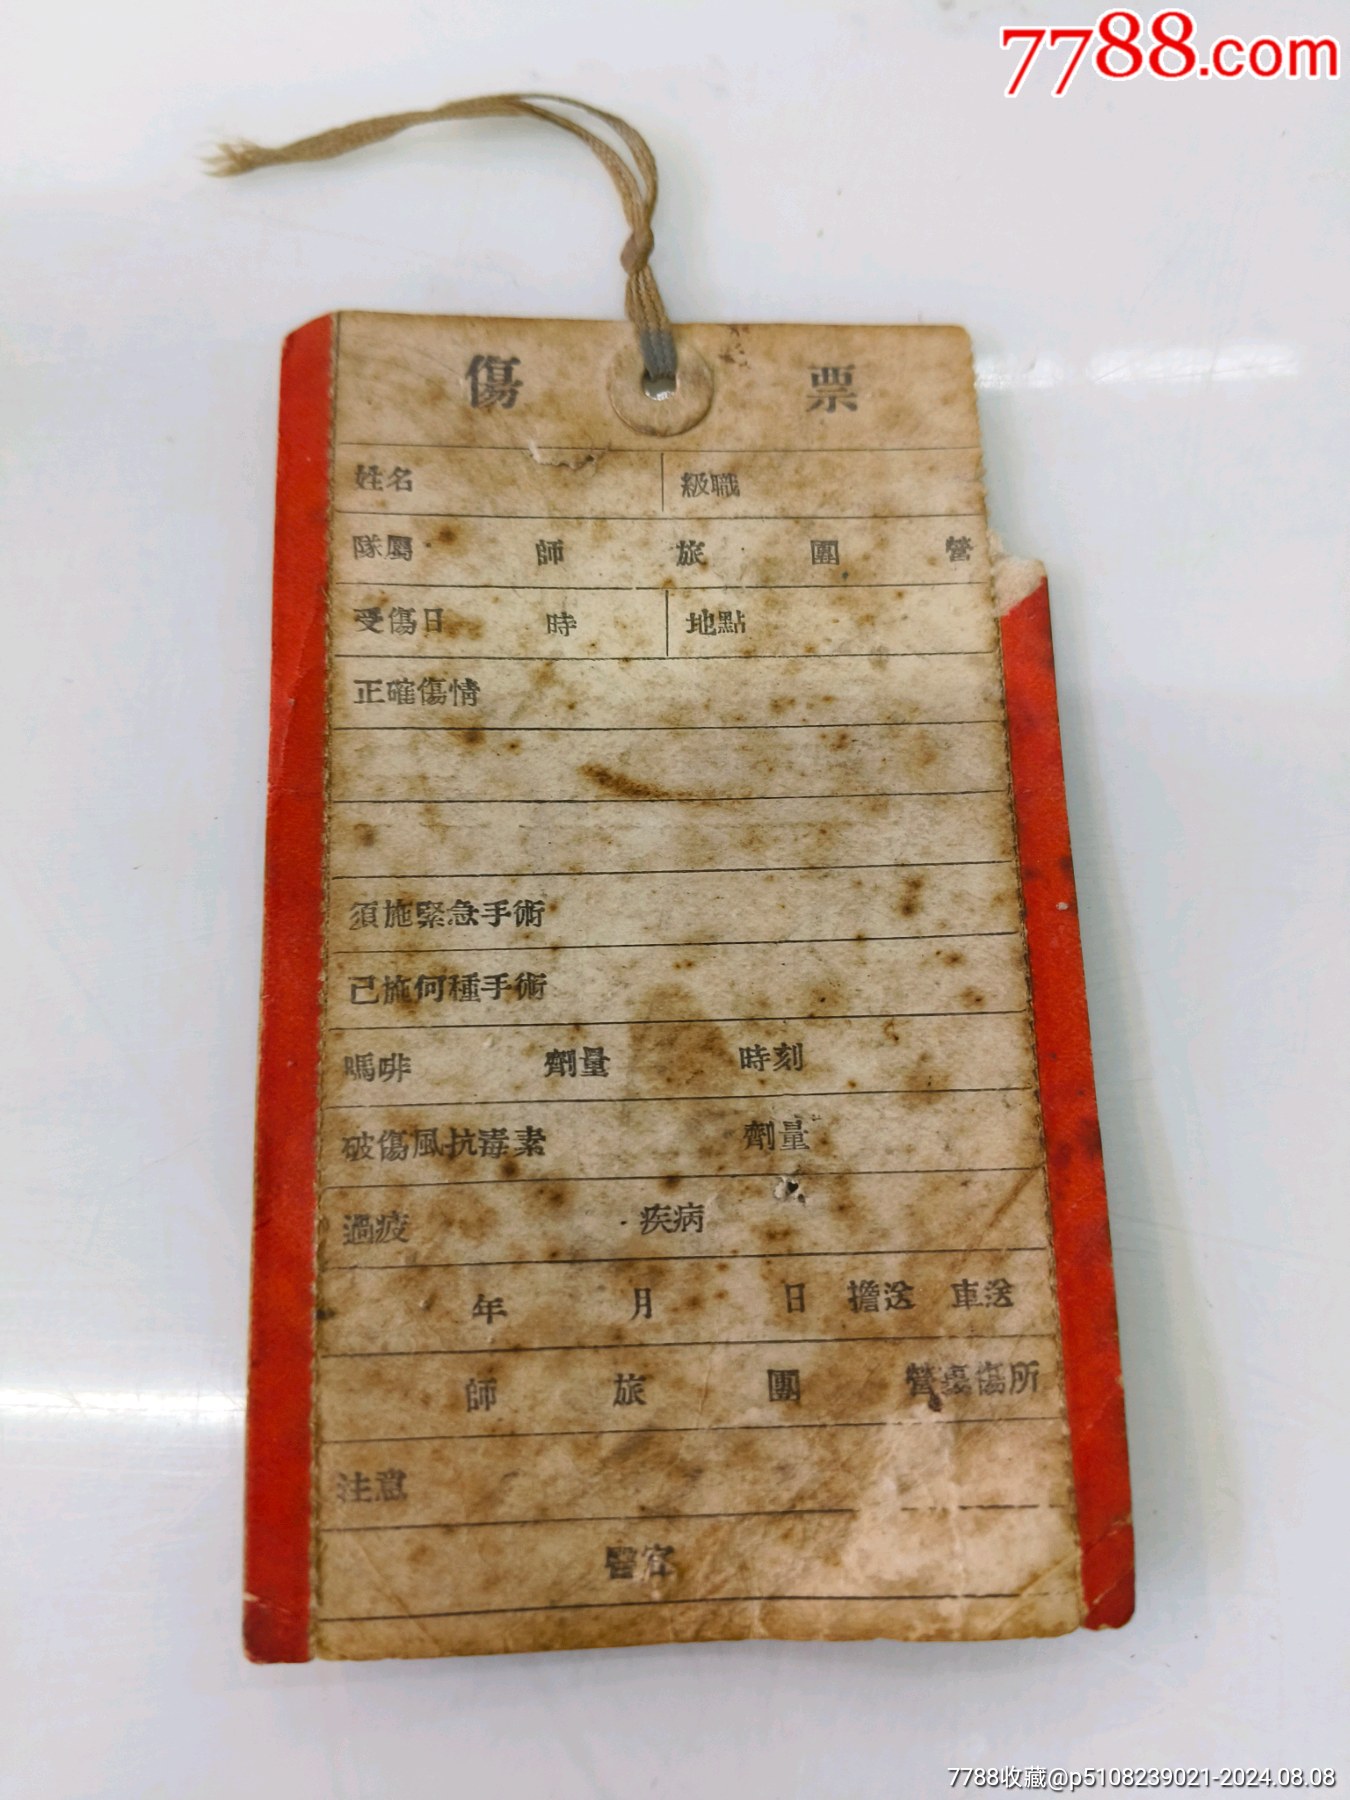 7788.com
傷 票
姓名 級職
隊屬 師 旅 團 營
受傷日 時 地點
正確傷情
須施緊急手術
已施何種手術
嗎啡 劑量 時刻
破傷風抗毒素 劑量
過疲 疾病
年 月 日 擔送 車送
師 旅 團 營裹傷所
注意
醫官
7788收藏@p5108239021-2024.08.08